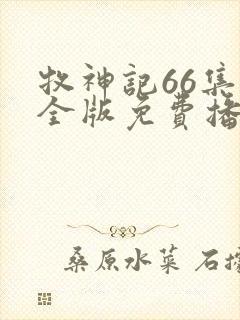 牧神記66集
全版免費播
桑原水菜 石據